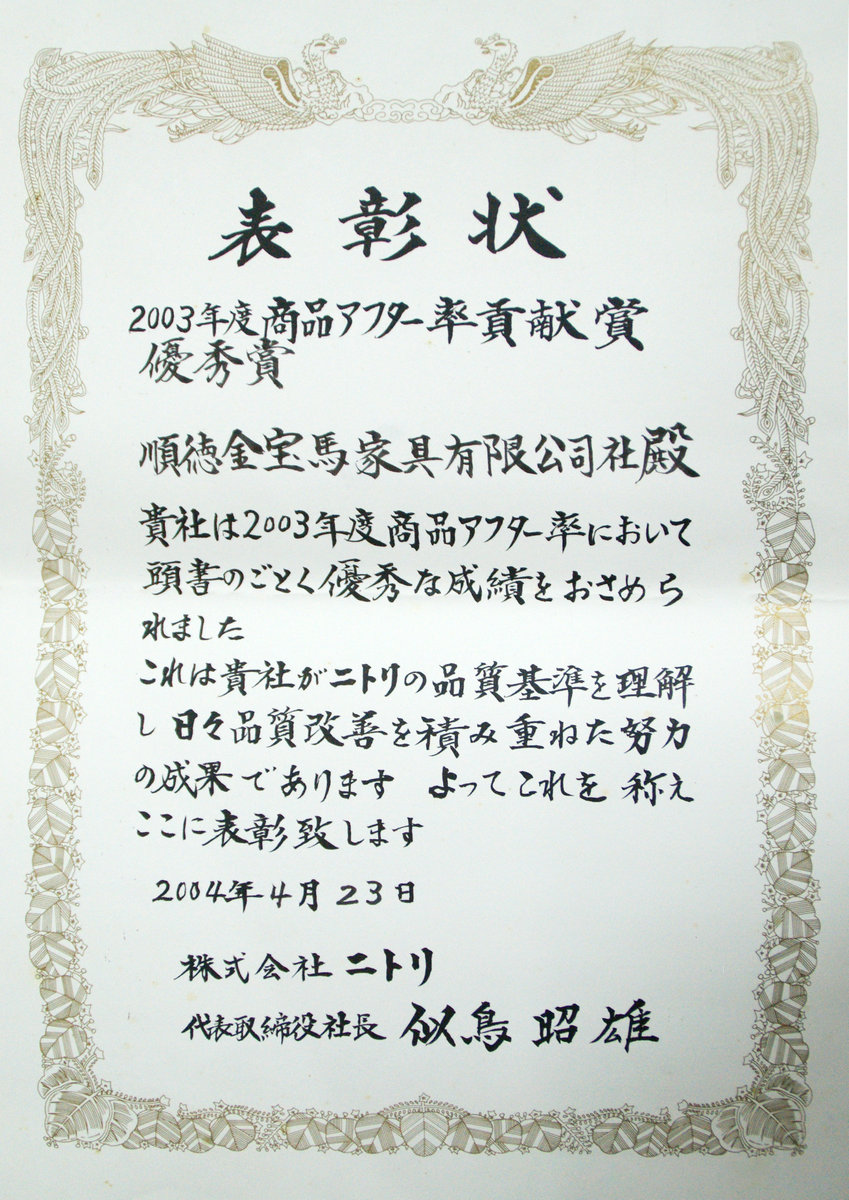 表彰状
2003年度商品アフター率貢献賞
優秀賞
順徳金宝馬家具有限公司社殿
貴社は2003年度商品アフター率において
頭書のごとく優秀な成績をおさめら
れました
これは貴社がニトリの品質基準を理解
し日々品質改善を積み重ねた努力
の成果であります よってこれを称え
ここに表彰致します
2004年4月23日
株式会社ニトリ
代表取締役社長 似鳥昭雄